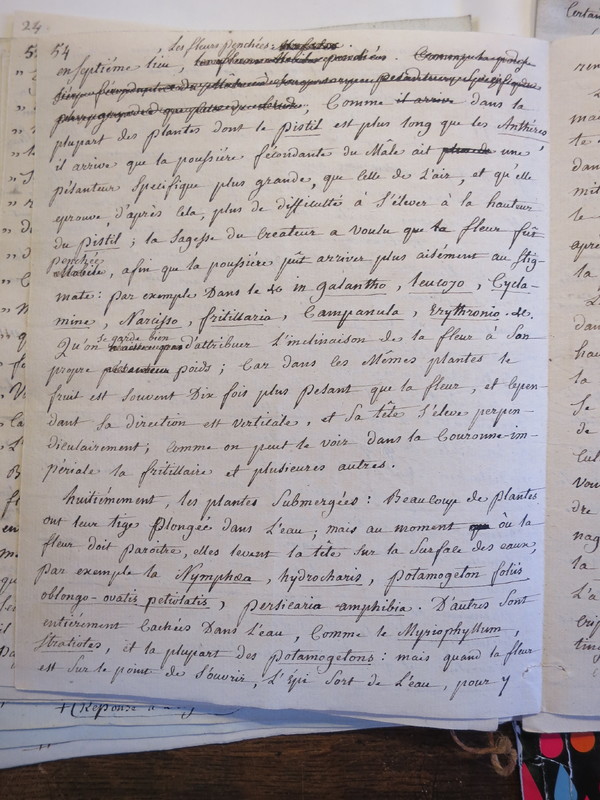 24.
54
, Les fleurs penchées
en septiéme lieu, Comme il arrive dans la
plupart des plantes dont le Pistil est plus long que les Anthéres,
il arrive que la poussiére fécondante du Mâle ait une
pésanteur Specifique plus grande, que celle de L'air, et qu'elle
eprouve, d'après cela, plus de difficulté à S'élever à la hauteur
du Pistil; la Sagesse du Createur a voulu que la fleur fût
penchée
, afin que la poussiére pût arriver plus aisément au Stig-
mate: par exemple Dans le in galantho, leucojo, Cycla-
mine, Narcisso, fritillaria, Campanula, Erythronio, &c.
se garde bien
Qu'on d'attribuer L'inclinaison de la fleur à Son
propre poids; Car dans les Mêmes plantes le
fruit est Souvent Dix fois plus pesant que la fleur, et Cepen-
dant Sa direction est verticale, et Sa tête S'éleve perpen-
diculairement; Comme on peut le voir dans la Couronne-im-
périale la fritillaire et plusieures autres.
huitiémement, les plantes Submergées: Beaucoup de plantes
ont leur tige Plongée dans L'eau; mais au moment où la
fleur doit paroître, elles levent la tête sur la Surface des eaux,
par exemple la Nymphæa, hydrocharis, potamogeton foliis
oblongo-ovatis petiolatis, persicaria amphibia. D'autres Sont
entiérement Cachées Dans L'eau, Comme le Myriophyllum,
Stratiotes, et la plupart des potamogetons: mais quand la fleur
est sur le point de S'ouvrir, L'Epi Sort de L'eau, pour y